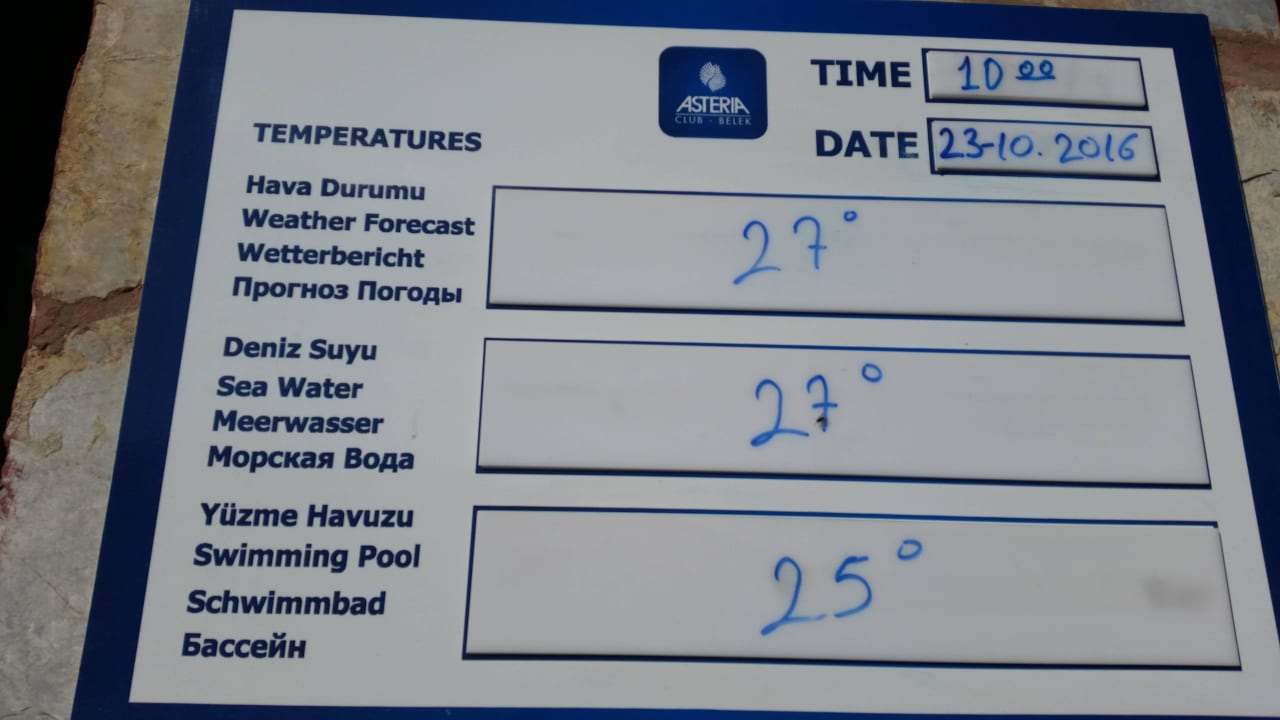 ASTERIA
CLUB - BELEK
TIME 10 00
DATE 23-10.2016
TEMPERATURES
Hava Durumu
Weather Forecast
Wetterbericht
Прогноз Погоды
27°
Deniz Suyu
Sea Water
Meerwasser
Морская Вода
27°
Yüzme Havuzu
Swimming Pool
Schwimmbad
Бассейн
25°